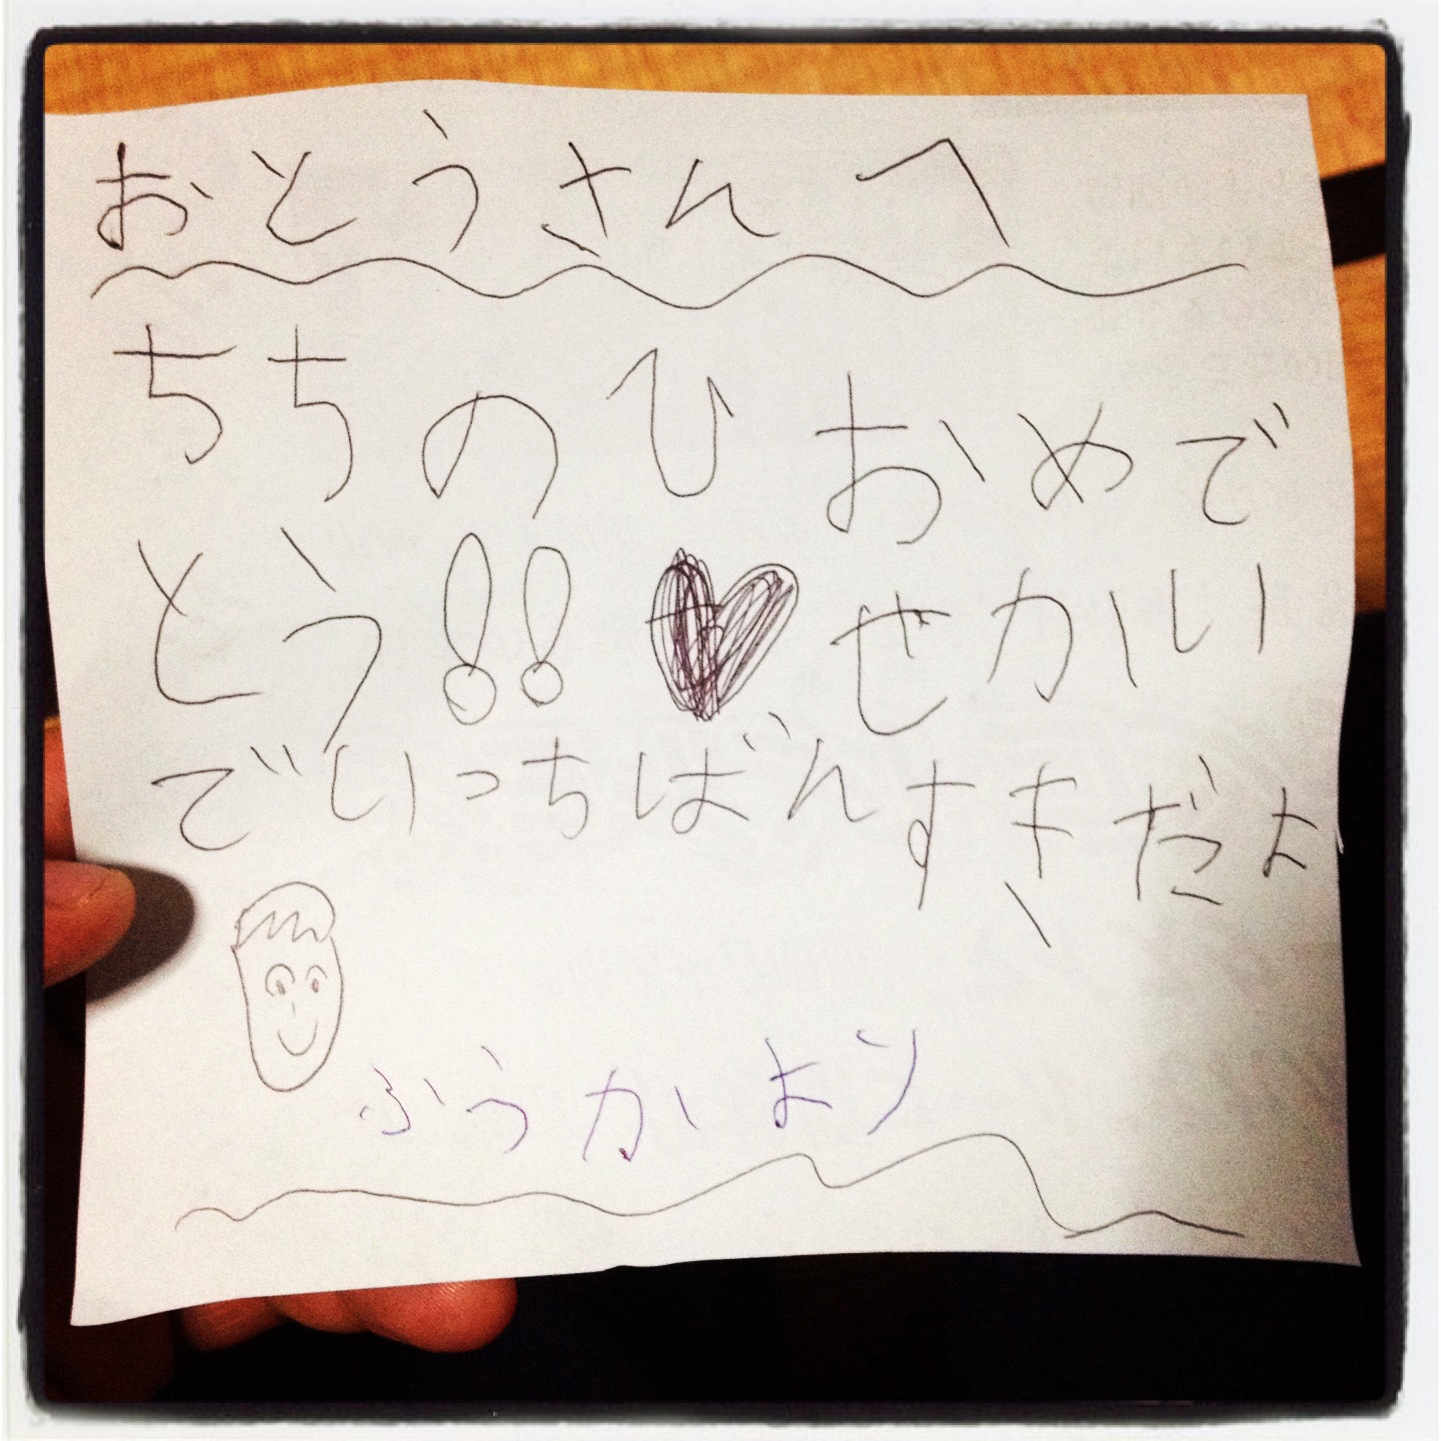 おとうさんへ
ちちのひ おめで
とう!!♥せかい
でいっちばんすきだよ
ふうかより